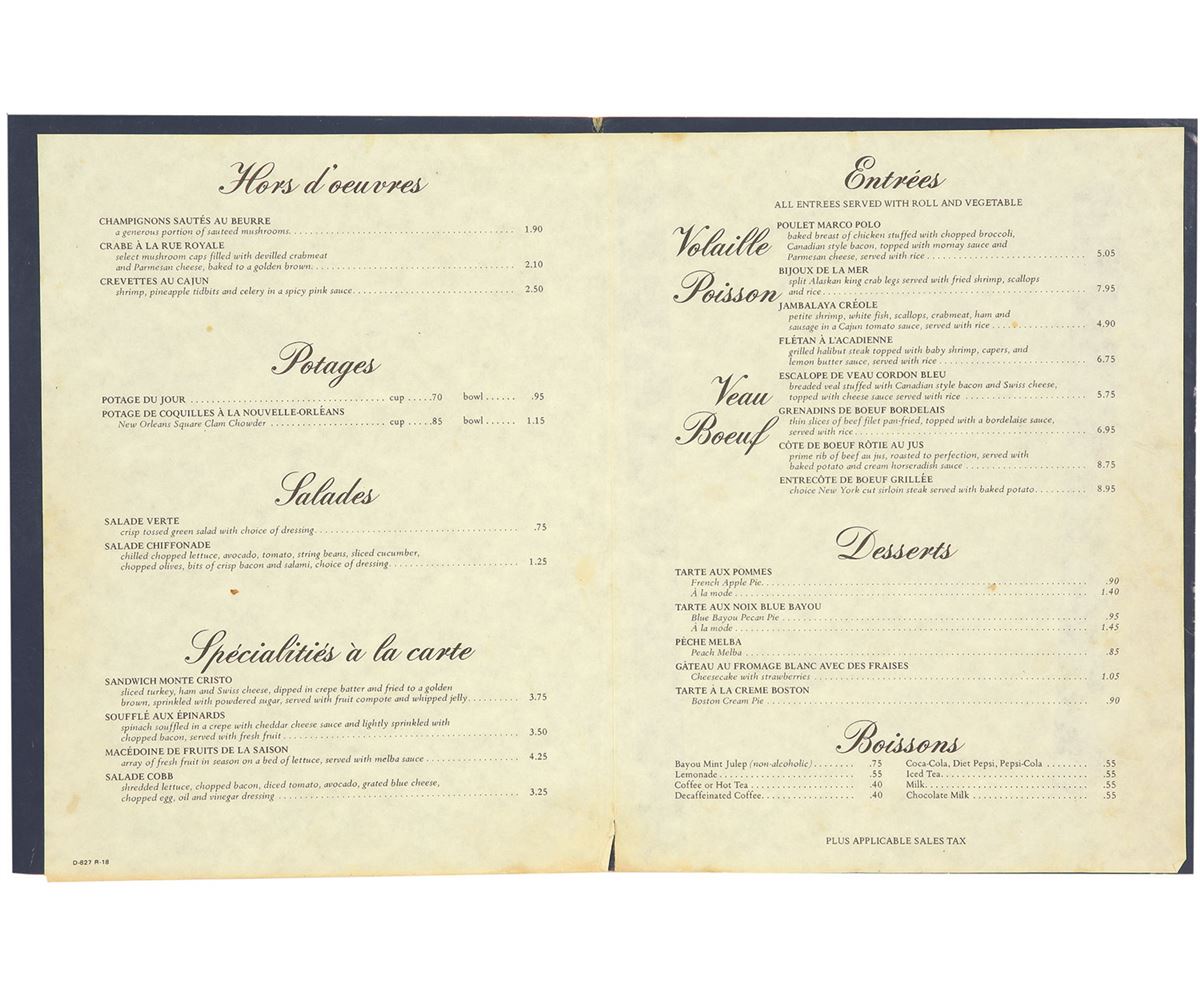 Hors d'oeuvres
CHAMPIGNONS SAUTÉS AU BEURRE
a generous portion of sauteed mushrooms. 1.90
CRABE À LA RUE ROYALE
select mushroom caps filled with devilled crabmeat
and Parmesan cheese, baked to a golden brown. 2.10
CREVETTES AU CAJUN
shrimp, pineapple tidbits and celery in a spicy pink sauce. 2.50
Potages
POTAGE DU JOUR cup .70 bowl .95
POTAGE DE COQUILLES À LA NOUVELLE-ORLÉANS
New Orleans Square Clam Chowder cup .85 bowl 1.15
Salades
SALADE VERTE
crisp tossed green salad with choice of dressing. .75
SALADE CHIFFONADE
chilled chopped lettuce, avocado, tomato, string beans, sliced cucumber,
chopped olives, bits of crisp bacon and salami, choice of dressing. 1.25
Spécialitiés à la carte
SANDWICH MONTE CRISTO
sliced turkey, ham and Swiss cheese, dipped in crepe batter and fried to a golden
brown, sprinkled with powdered sugar, served with fruit compote and whipped jelly. 3.75
SOUFFLÉ AUX ÉPINARDS
spinach souffled in a crepe with cheddar cheese sauce and lightly sprinkled with
chopped bacon, served with fresh fruit 3.50
MACÉDOINE DE FRUITS DE LA SAISON
array of fresh fruit in season on a bed of lettuce, served with melba sauce 4.25
SALADE COBB
shredded lettuce, chopped bacon, diced tomato, avocado, grated blue cheese,
chopped egg, oil and vinegar dressing 3.25
D-627 R-18
Entrées
ALL ENTREES SERVED WITH ROLL AND VEGETABLE
Volaille
POULET MARCO POLO
baked breast of chicken stuffed with chopped broccoli,
Canadian style bacon, topped with mornay sauce and
Parmesan cheese, served with rice 5.05
Poisson
BIJOUX DE LA MER
split Alaskan king crab legs served with fried shrimp, scallops
and rice 7.95
JAMBALAYA CRÉOLE
petite shrimp, white fish, scallops, crabmeat, ham and
sausage in a Cajun tomato sauce, served with rice 4.90
FLÉTAN À L'ACADIENNE
grilled halibut steak topped with baby shrimp, capers, and
lemon butter sauce, served with rice 6.75
Veau
ESCALOPE DE VEAU CORDON BLEU
breaded veal stuffed with Canadian style bacon and Swiss cheese,
topped with cheese sauce served with rice 5.75
Boeuf
GRENADINS DE BOEUF BORDELAIS
thin slices of beef filet pan-fried, topped with a bordelaise sauce,
served with rice 6.95
CÔTE DE BOEUF RÔTIE AU JUS
prime rib of beef au jus, roasted to perfection, served with
baked potato and cream horseradish sauce 8.75
ENTRECÔTE DE BOEUF GRILLÉE
choice New York cut sirloin steak served with baked potato. 8.95
Desserts
TARTE AUX POMMES
French Apple Pie. .90
À la mode 1.40
TARTE AUX NOIX BLUE BAYOU
Blue Bayou Pecan Pie .95
À la mode 1.45
PÊCHE MELBA
Peach Melba .85
GÂTEAU AU FROMAGE BLANC AVEC DES FRAISES
Cheesecake with strawberries 1.05
TARTE À LA CREME BOSTON
Boston Cream Pie .90
Boissons
Bayou Mint Julep (non-alcoholic) .75 Coca-Cola, Diet Pepsi, Pepsi-Cola .55
Lemonade .55 Iced Tea .55
Coffee or Hot Tea .40 Milk .55
Decaffeinated Coffee .40 Chocolate Milk .55
PLUS APPLICABLE SALES TAX